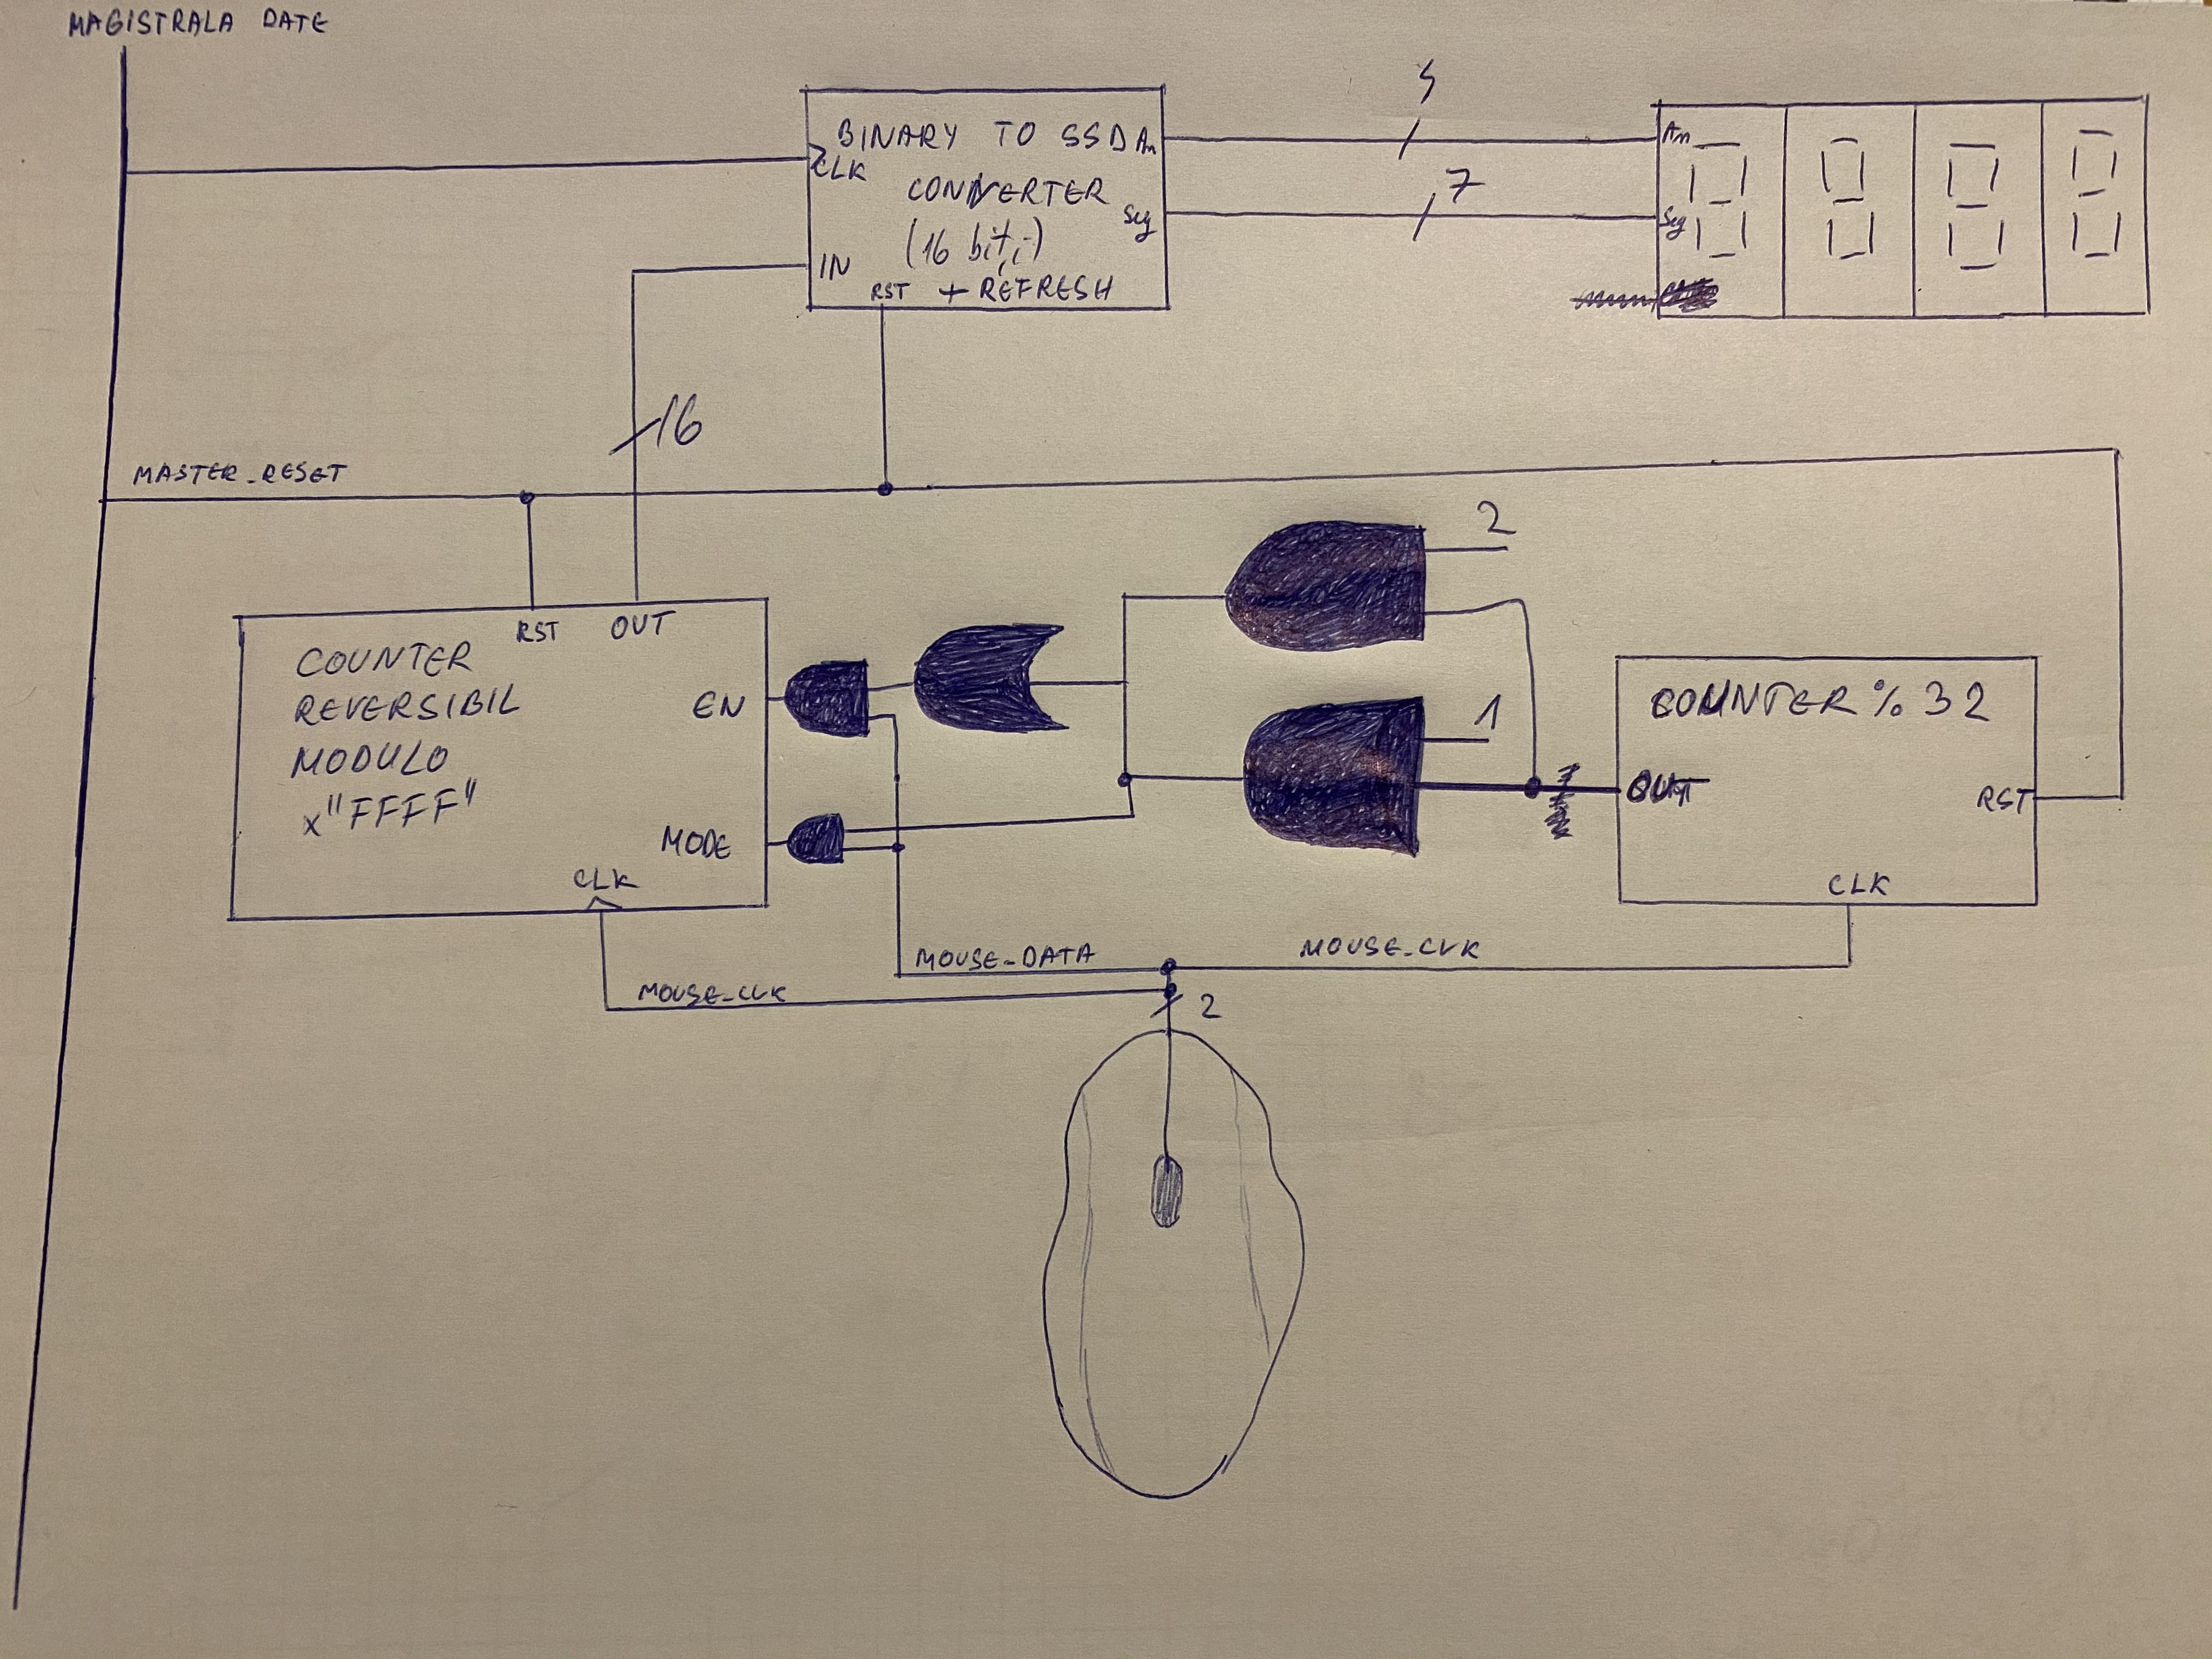 MAGISTRALA DATE
BINARY TO SSD
CONVERTER
(16 biți)
+ REFRESH
CLK
IN
RST
An
Seg
7
An
Seg
16
MASTER_RESET
RST
OUT
COUNTER
REVERSIBIL
MODULO
x"FFFF"
EN
MODE
CLK
2
1
COUNTER % 32
OUT
RST
CLK
MOUSE_DATA
MOUSE_CLK
MOUSE_CLK
2